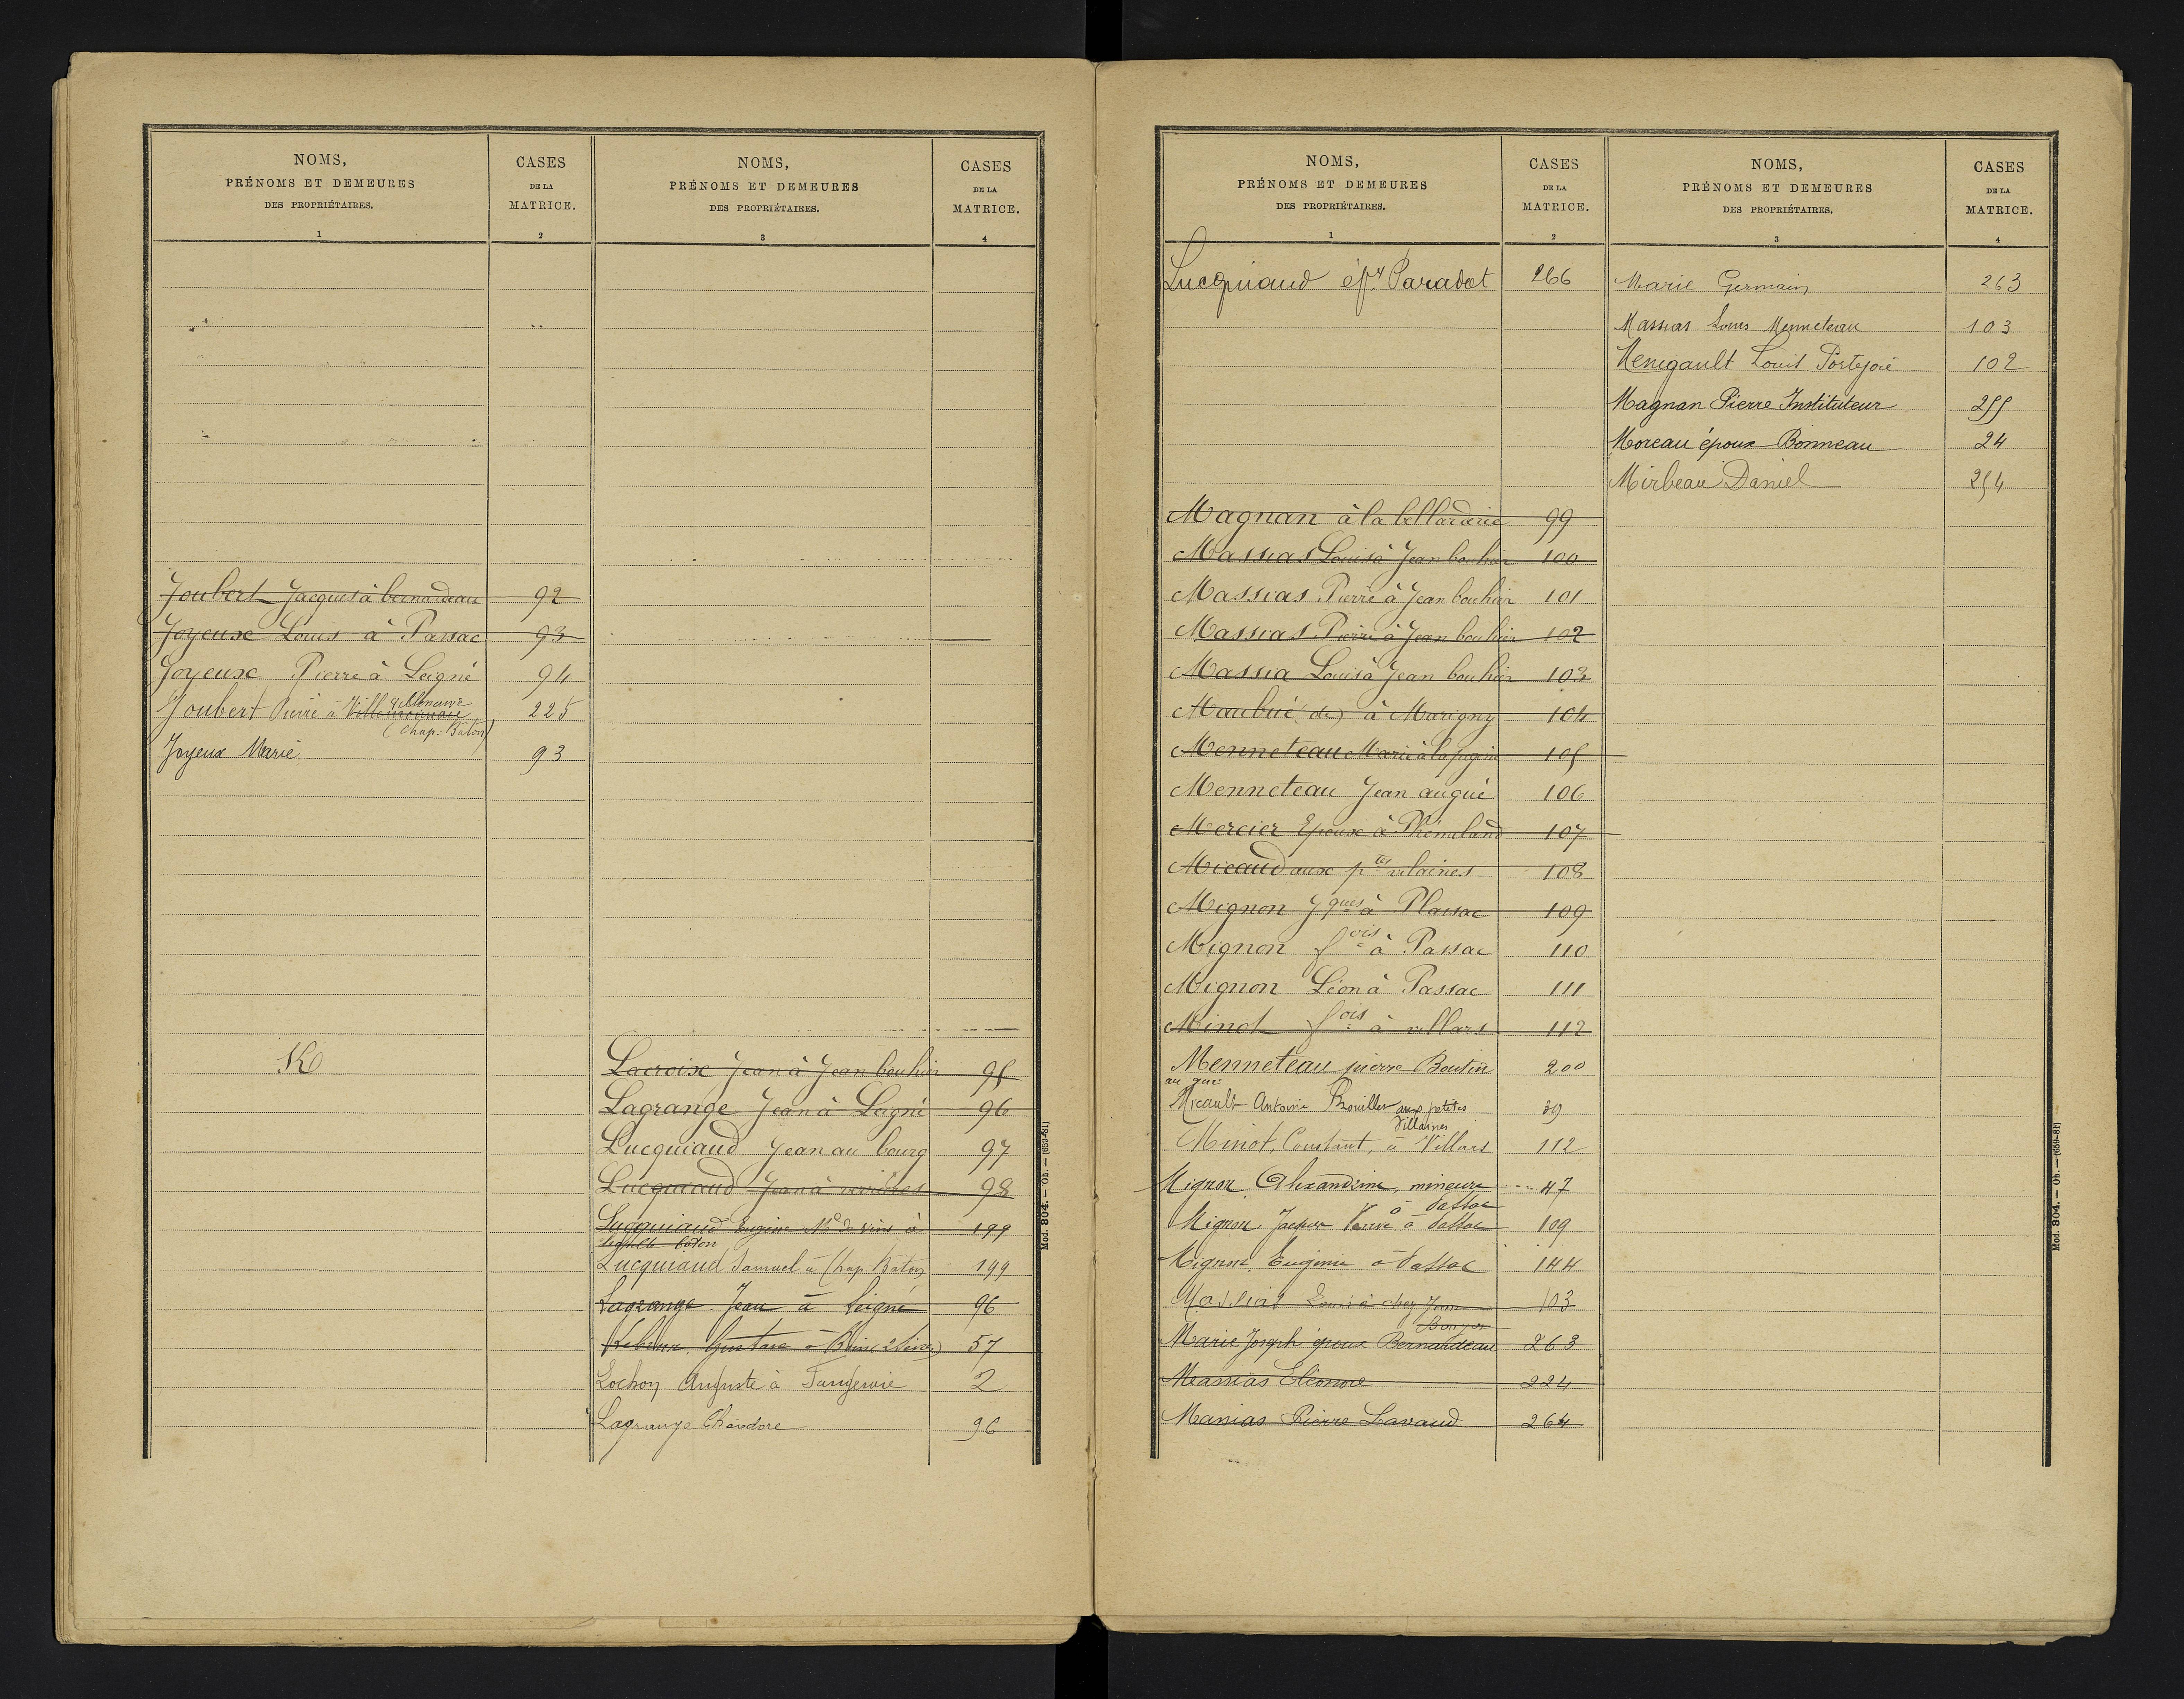 NOMS,
PRÉNOMS ET DEMEURES
DES PROPRIÉTAIRES.
1
CASES
DE LA
MATRICE.
2
Joubert Jacques à bernardeau 92
Joyeuse Louis à Passac 93
Joyeuse Pierre à Leigné 94
Villeneuve
Joubert Pierre à 225
(Chap. Bâton)
Joyeux Marie 93
K
NOMS,
PRÉNOMS ET DEMEURES
DES PROPRIÉTAIRES.
3
CASES
DE LA
MATRICE.
4
Lacroix Jean à Jean bouhier 95
Lagrange Jean à Leigné 96
Lucquiaud Jean au bourg 97
Lucquiaud Jean à 98
Lucquiaud Eugène Md de vins à 199
bâton
Lucquiaud Samuel à Chap. Bâton 199
Lagrange Jean à Leigné 96
Gustave à 57
Lochon Auguste à 2
Lagrange Théodore 96
Mod. 804. — Ob. — (659-81)
NOMS,
PRÉNOMS ET DEMEURES
DES PROPRIÉTAIRES.
1
CASES
DE LA
MATRICE.
2
Lucquiaud épx Paradot 266
Magnan à la bellarderie 99
Massias Louis à Jean bouhier 100
Massias Pierre à Jean bouhier 101
Massias Pierre à Jean bouhier 102
Massia Louis à Jean bouhier 103
Maubué (de) à Marigny 104
Menneteau Marie à la 105
Menneteau Jean au gué 106
Mercier Epoux à 107
Micaud aux ptes vilaines 108
Mignon Jques à Plassac 109
Mignon fois à Passac 110
Mignon Léon à Passac 111
Minot fois à villars 112
Menneteau pierre Boutin 200
au gué
Micault Antoine Brouillet aux petites 39
Villaines
Minot, Constant, à Villars 112
Mignon Alexandrine, mineure 47
à Passac
Mignon Jacques Veuve à Passac 109
Mignon Eugénie à Passac 144
Massias Louis à chez Jean 103
Marie Joseph époux Bernardeau 263
Massias Eléonore 224
Massias Pierre Lavaud 264
NOMS,
PRÉNOMS ET DEMEURES
DES PROPRIÉTAIRES.
3
CASES
DE LA
MATRICE.
4
Marie Germain 263
Massias Louis Menneteau 103
Menigault Louis Portejoie 102
Magnan Pierre Instituteur 255
Moreau époux Bonneau 24
Mirbeau Daniel 254
Mod. 804. — Ob. — (659-81)